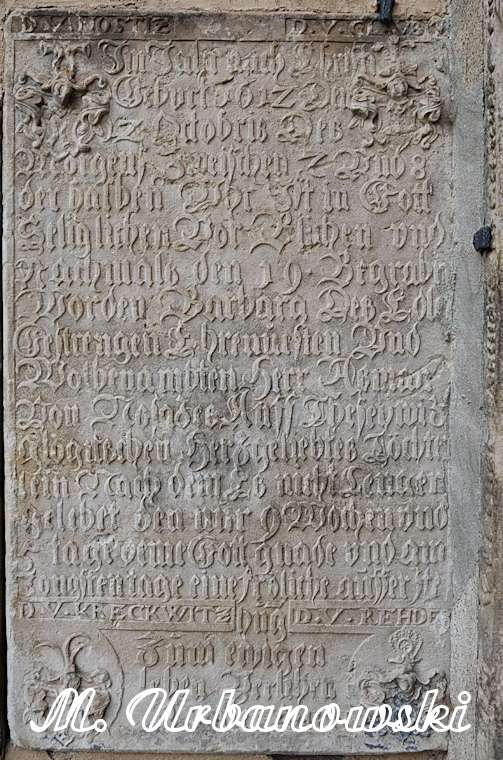 D.V. NOSTIZ D.V.
Im Jahr nach Christi
Gebort 1612 Den
12 Octobris Des
Morgens Zwischen 7 Vnd 8
der halben Vhr Ist in Gott
Seliglichen Vor Blichen vnd
nachmals den 19 Begrabn
Worden Barbara Des Edle
Gestrengen Ehrnuesten Vnd
Wolbenambten Herr
Von Auff
Herzgeliebtes Töchter
lein Nach dem Es nicht Lenger
gelebet den nur 9 Wochen vnd
tage Gott gnade vnd am
Jungsten tage eine fröliche aufferste
D.V. KRECKWITZ hug D.V. REHDE
Zum ewigen
leben
M. Urbanowski